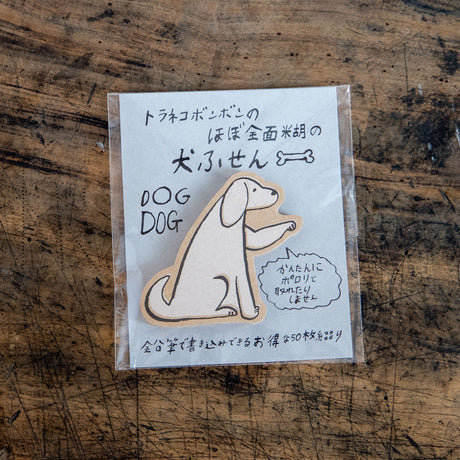 トラネコボンボンの
ほぼ全面米糊の
犬ふせん
DOG
DOG
かんたんに
ポロリと
取れたり
しません
鉛筆で書き込みできるお得な50枚綴り